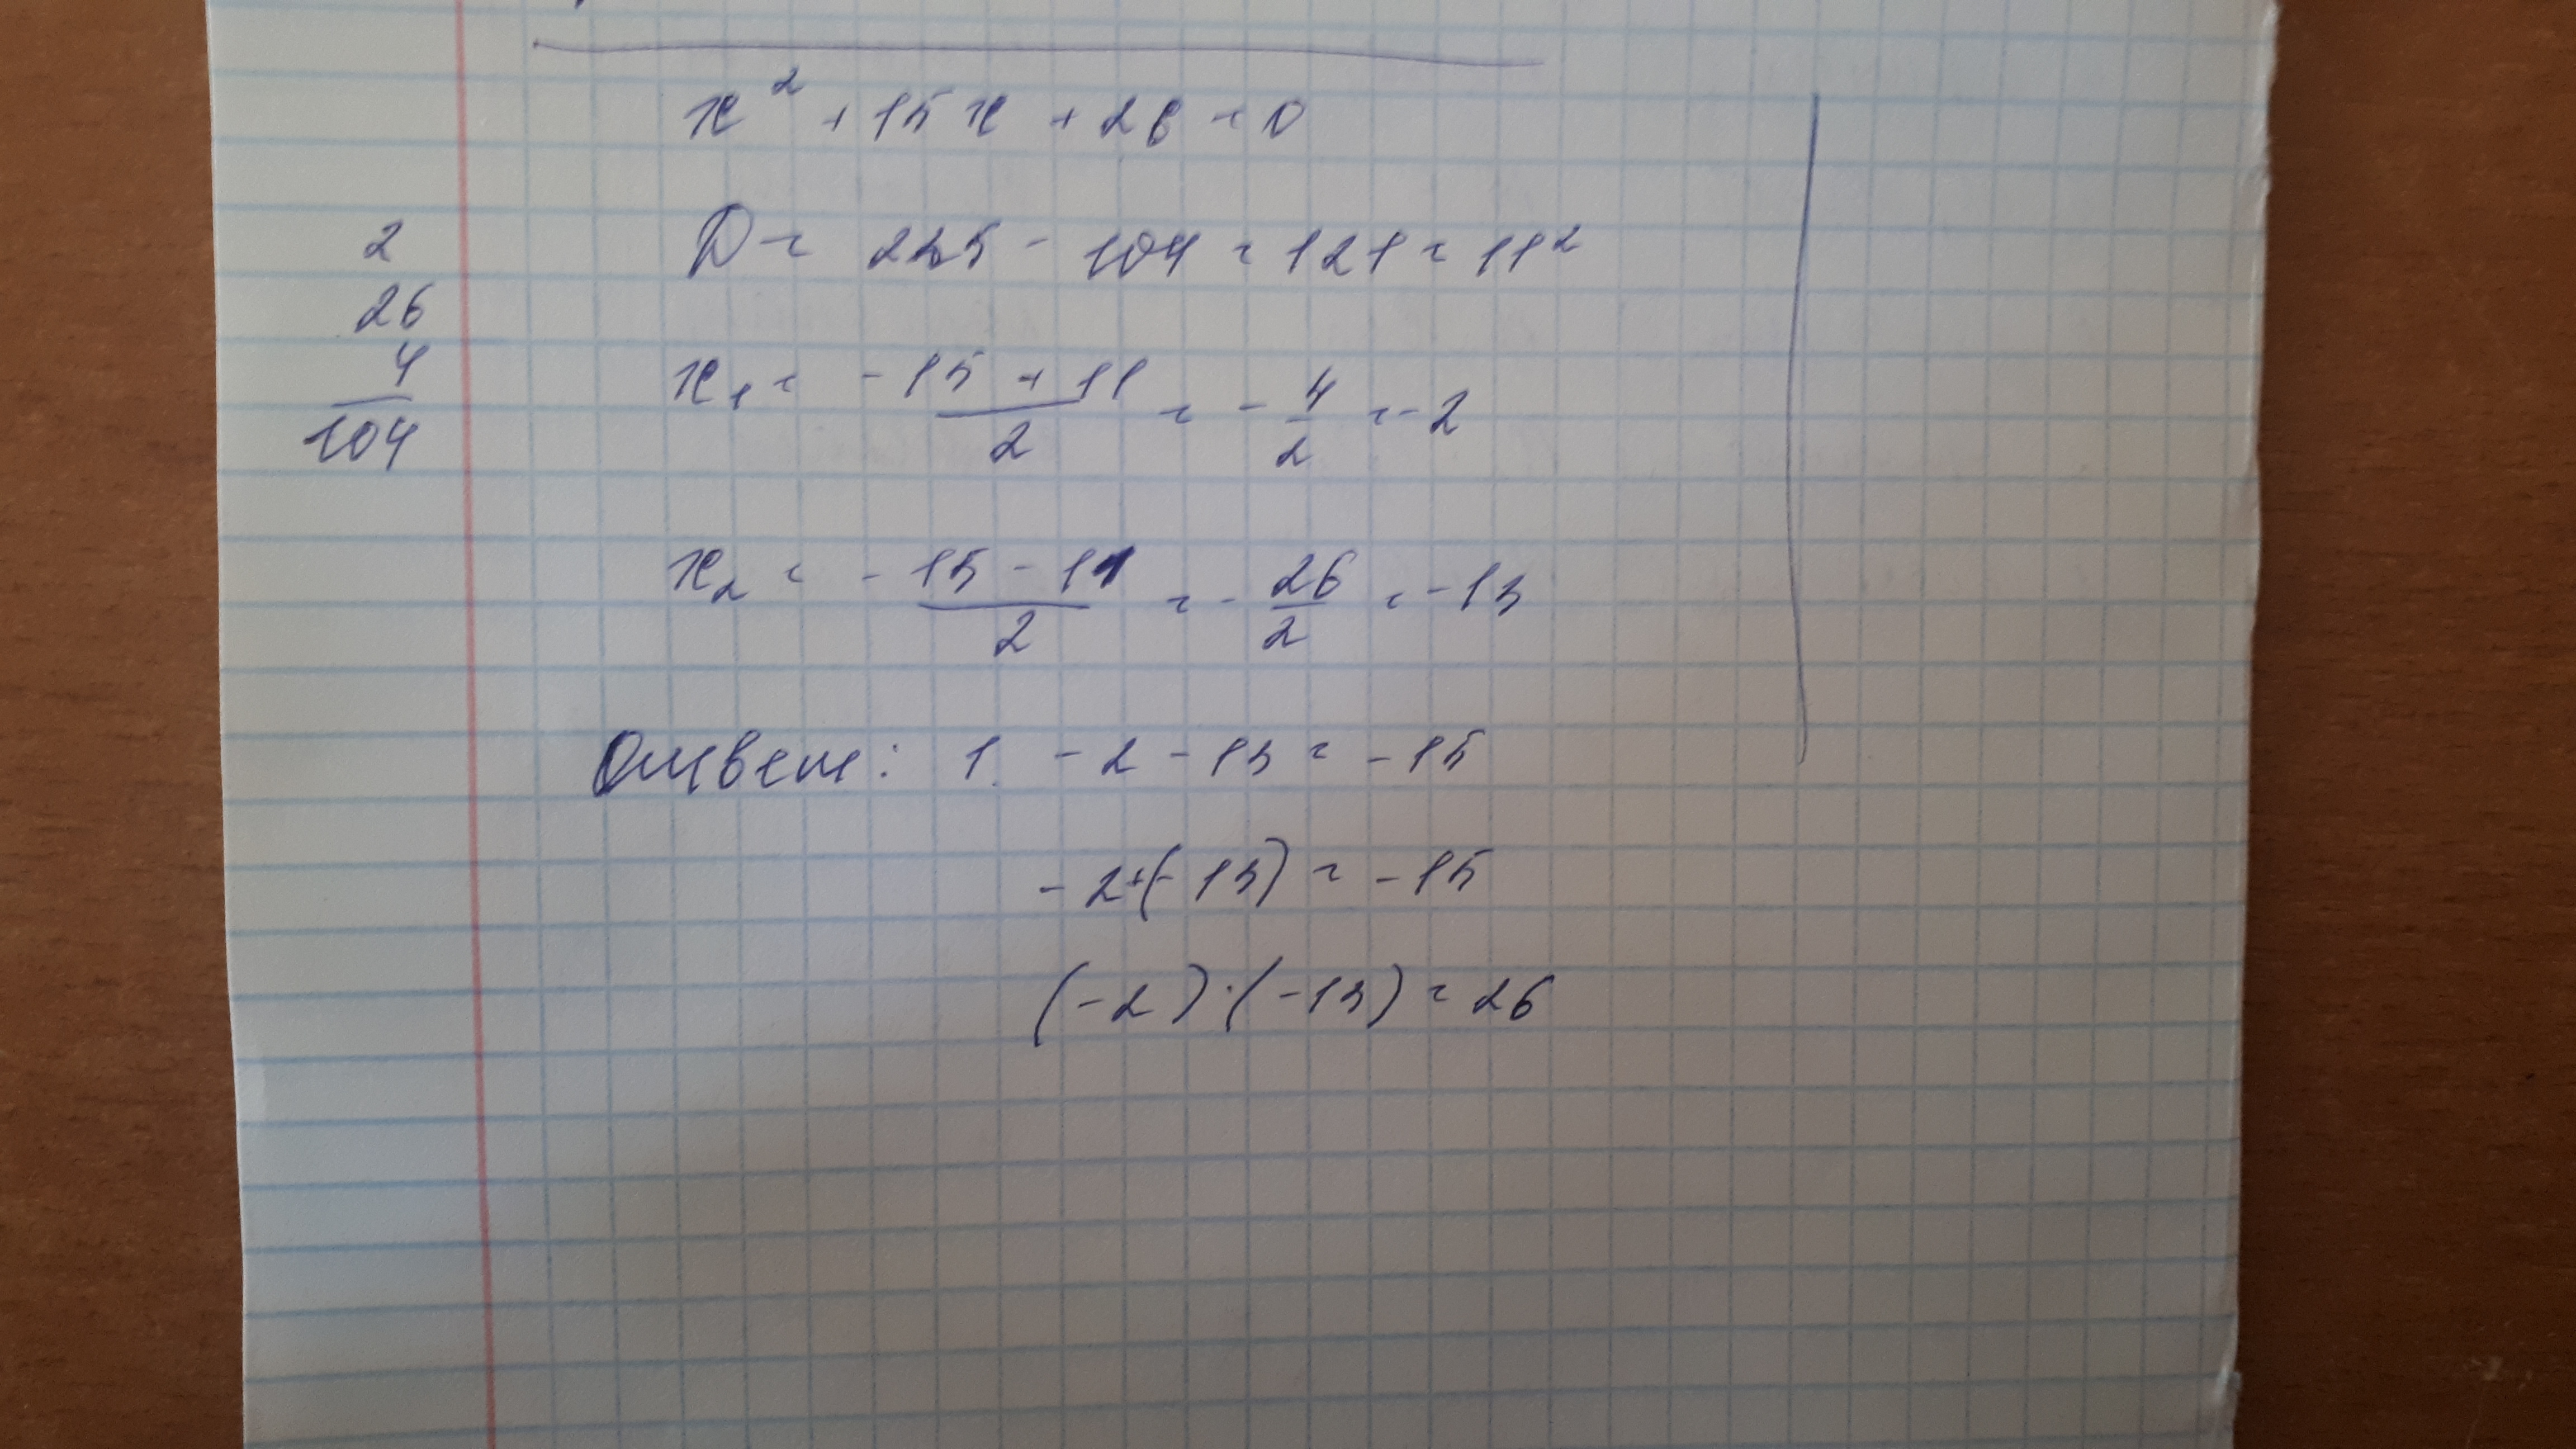 x² + 15x + 26 = 0
D = 225 - 104 = 121 = 11²
2
26
4
104
x₁ = (-15 + 11)/2 = -4/2 = -2
x₂ = (-15 - 11)/2 = -26/2 = -13
Ответ: 1. -2 - 13 = -15
-2+(-13) = -15
(-2)·(-13) = 26